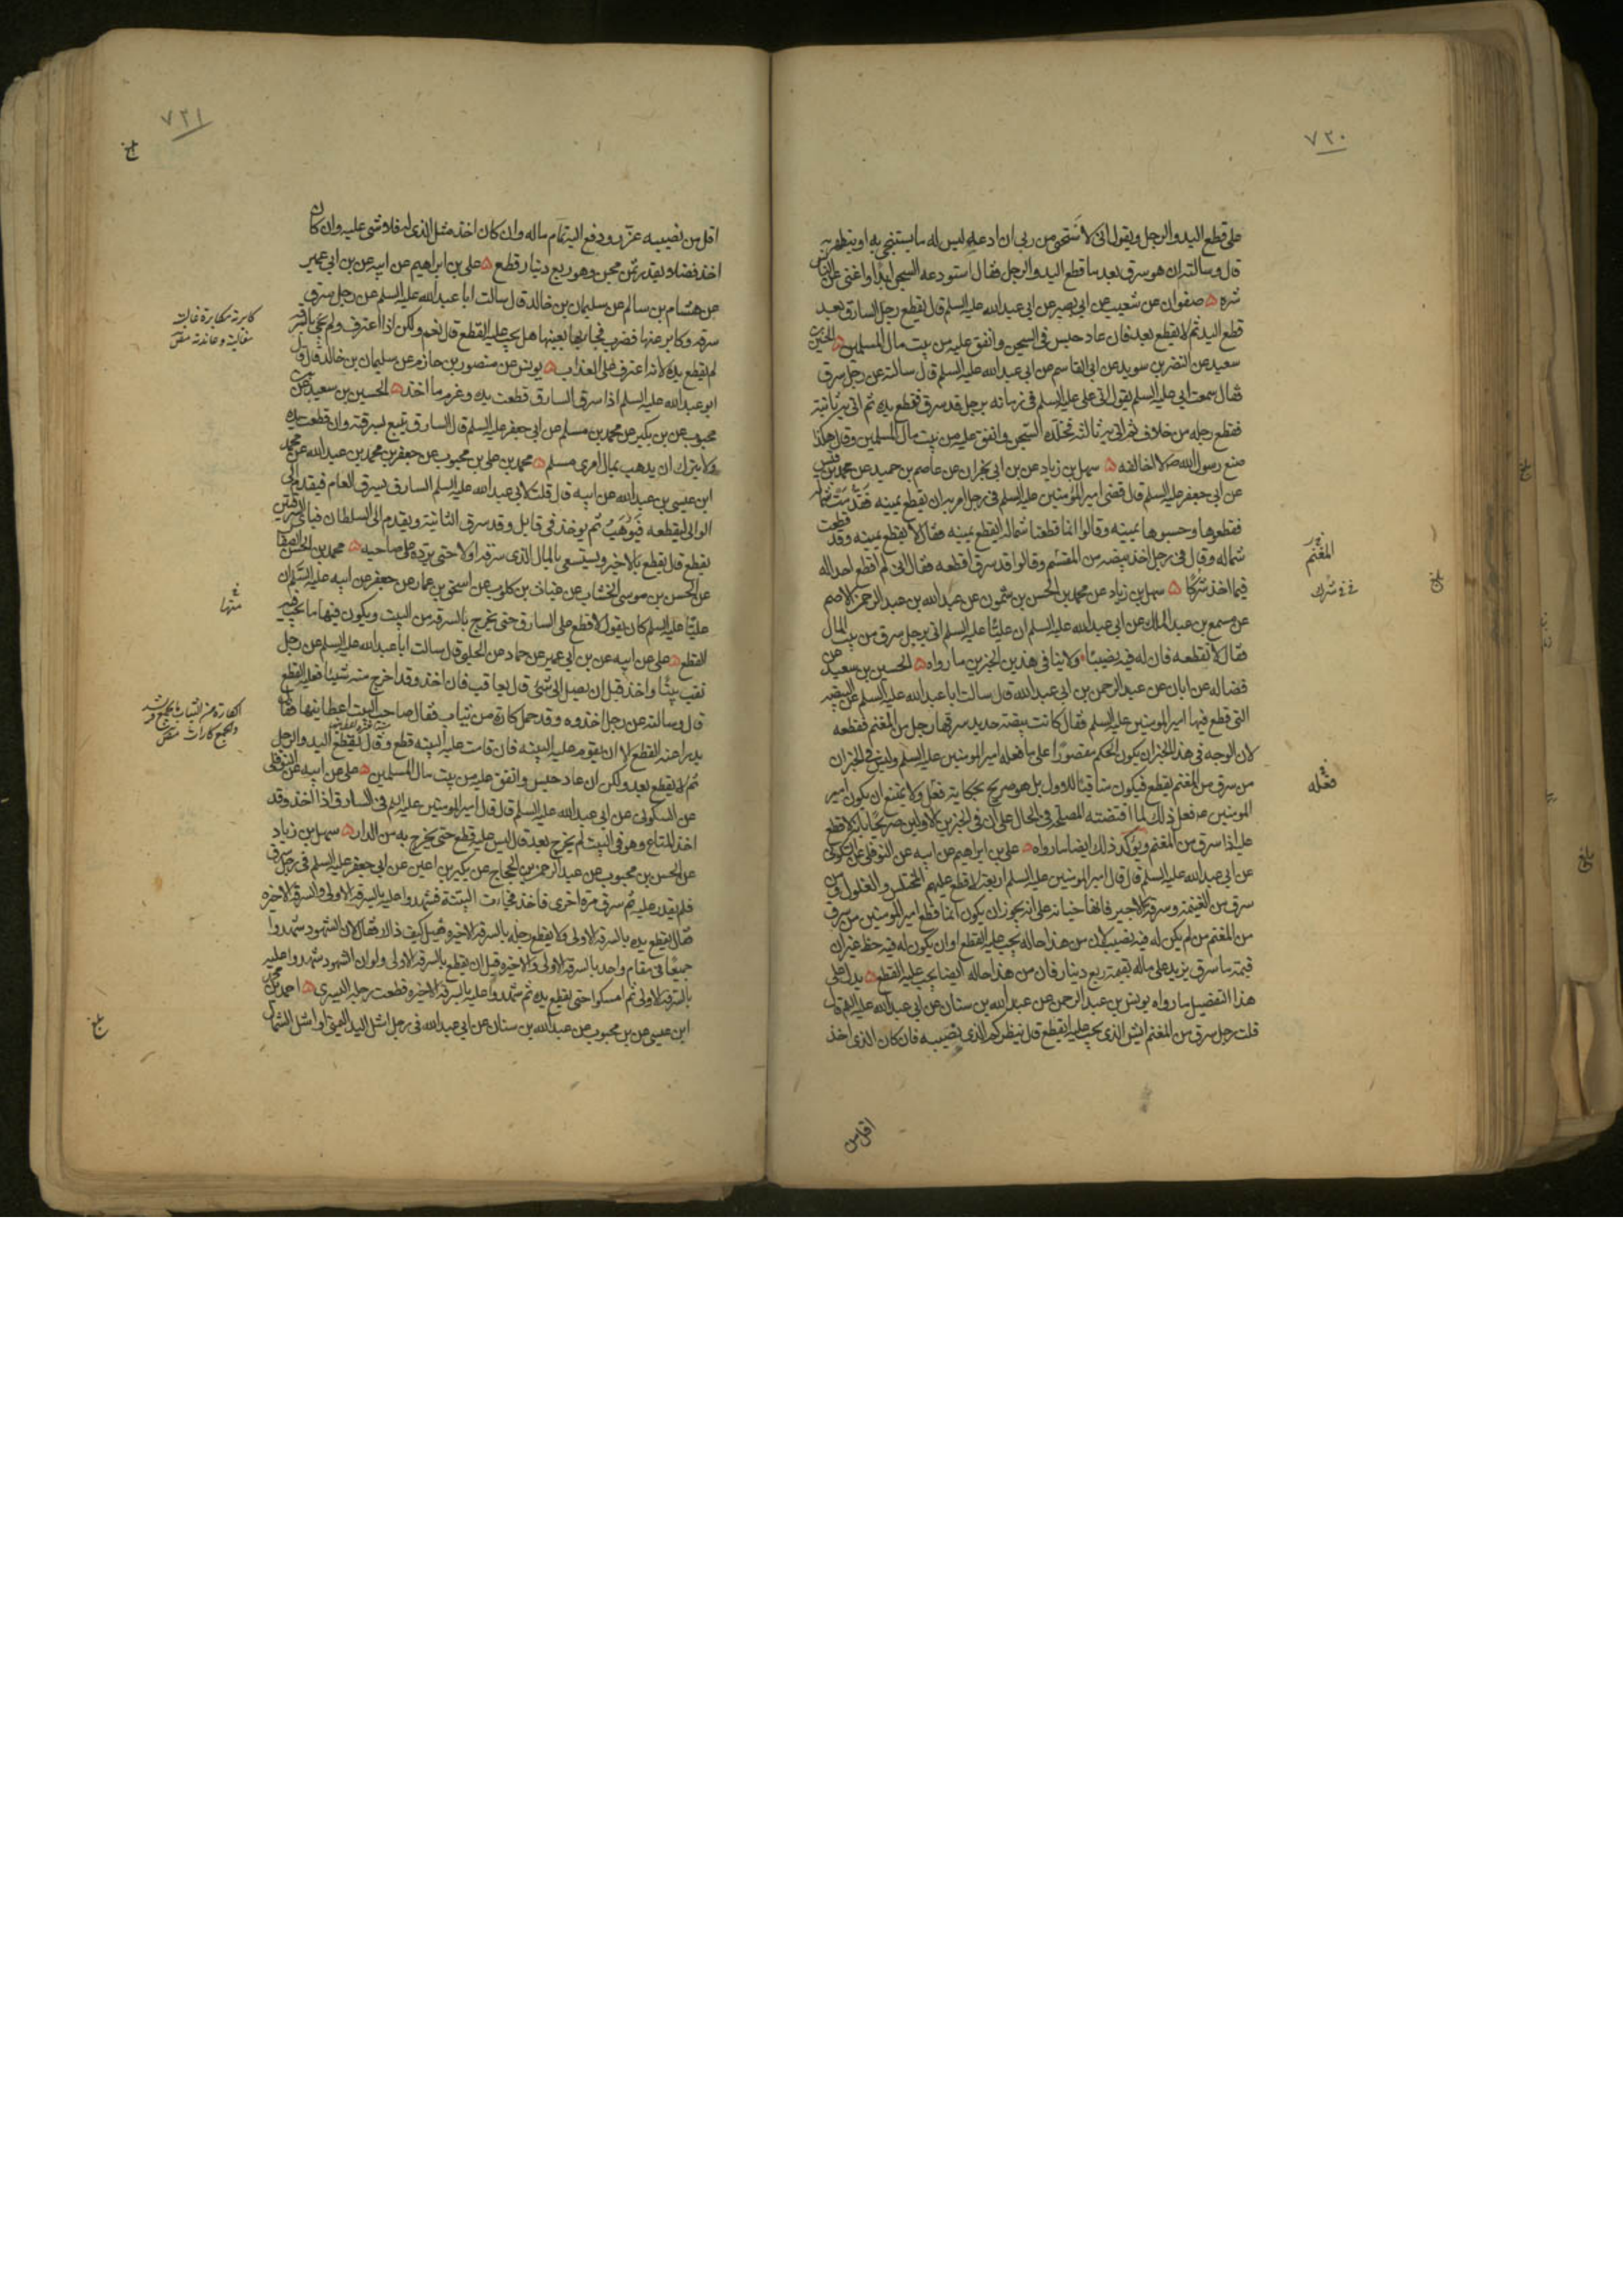 ٧٢٠
على قطع اليد والرجل ويقول انى لاستحيى من ربى ان ادعه ليس له ما يستنجى به او يتطهر به
قال وسالته ان هو سرق بعد ما قطع اليد والرجل فقال استودعه السجن ابدا واغنى عن الناس
شره صفوان عن شعيب عن ابى بصير عن ابى عبد الله عليه السلم قال يقطع رجل السارق بعد
قطع اليد ثم لا يقطع بعد فان عاد حبس فى السجن وانفق عليه من بيت مال المسلمين الحسين بن
سعيد عن النضر بن سويد عن ابى القاسم عن ابى عبد الله عليه السلم قال سالته عن رجل سرق
فقال سمعت ابى عليه السلم يقول اتى على عليه السلم فى زمانه برجل قد سرق فقطع يده ثم اتى به ثانية
فقطع رجله من خلاف ثم اتى به ثالثه فخلده السجن وانفق عليه من بيت مال المسلمين وقال هكذا
صنع رسول الله ص لا اخالفه سهل بن زياد عن بن ابى نجران عن عاصم بن حميد عن محمد بن قيس
عن ابى جعفر عليه السلم قال قضى امير المؤمنين عليه السلم فى رجل امر به ان يقطع يمينه فقدمت شماله
فقطعوها وحسبوها يمينه وقالوا انما قطعنا شماله ايقطع يمينه فقال لا يقطع يمينه وقد قطعت
شماله وقال فى رجل اخذ بيضه من المقسم وقالوا قد سرق اقطعه فقال انى لم اقطع احدا له
فيما اخذ شركا سهل بن زياد عن محمد بن الحسن بن شمون عن عبد الله بن عبد الرحمن الاصم
عن مسمع بن عبد الملك عن ابى عبد الله عليه السلم ان عليا عليه السلم اتى برجل سرق من بيت المال
فقال لا نقطعه فان له فيه نصيبا ولا ينافى هذين الخبرين ما رواه الحسين بن سعيد عن
فضاله عن ابان عن عبد الرحمن بن ابى عبد الله قال سالت ابا عبد الله عليه السلم عن البيضه
التى قطع فيها امير المومنين عليه السلم فقال كانت بيضة حديد سرقها رجل من المغنم فقطعه
لان الوجه فى هذا الخبر ان يكون الحكم مقصورا على ما فعله امير المومنين عليه السلم وليس فى الخبر ان
من سرق من المغنم يقطع فيكون منافيا للاول بل هو صريح بحكاية فعل ولا يمتنع ان يكون امير
المومنين ع فعل ذلك لما اقتضته المصلحة فى الحال على ان فى الخبرين الاولين صريحا بانه لا قطع
عليه اذا سرق من المغنم ويوكد ذلك ايضا ما رواه على بن ابراهيم عن ابيه عن النوفلى عن السكونى
عن ابى عبد الله عليه السلم قال قال امير المومنين عليه السلم اربعة لا قطع عليهم المختلس والغلول ومن
سرق من الغنيمة وسرقة الاجير فانها خيانه على انه يجوز ان يكون انما قطع امير المومنين من سرق
من المغنم من لم يكن له فيه نصيب لان من هذا حاله يجب عليه القطع او ان يكون له فيه حظ غير ان
قيمة ما سرق يزيد على ماله بقيمة ربع دينار فان من هذا حاله ايضا يجب عليه القطع يدل على
هذا التفصيل ما رواه يونس بن عبد الرحمن عن عبد الله بن سنان عن ابى عبد الله عليه السلم قال
قلت رجل سرق من المغنم ايش الذى يجب عليه ايقطع قال ينظر كم الذى نصيبه فان كان الذى اخذ
اقل من
المغنم
شرك
فعله
بلغ
٧٢١
اقل من نصيبه عزر ودفع اليه تمام ماله وان كان اخذ مثل الذى له فلا شى عليه وان كان
اخذ فضلا بقدر ثمن مجن وهو ربع دينار قطع على بن ابراهيم عن ابيه عن بن ابى عمير
عن هشام بن سالم عن سليمان بن خالد قال سالت ابا عبد الله عليه السلم عن رجل سرق
سرقه وكابر عنها فضرب فجا بها بعينها هل يجب عليه القطع قال نعم ولكن اذا اعترف ولم يجى بالسرقه
لم يقطع يده لانه اعترف على العذاب يونس عن منصور بن حازم عن سليمان بن خالد قال قال
ابو عبد الله عليه السلم اذا سرق السارق قطعت يده وغرم ما اخذ الحسين بن سعيد عن
محبوب عن بن بكير عن محمد بن مسلم عن ابى جعفر عليه السلم قال السارق يتبع بسرقته وان قطعت يده
ولا يترك ان يذهب بمال امرى مسلم محمد بن على بن محبوب عن جعفر بن محمد بن عبيد الله عن محمد
ابن عيسى بن عبد الله عن ابيه قال قلت لابى عبد الله عليه السلم السارق يسرق العام فيقدم الى
الوالى ليقطعه فيوهب ثم يوخذ فى قابل وقد سرق الثانية ويقدم الى السلطان فباى السرقتين
يقطع قال يقطع بالاخير ويستسعى بالمال الذى سرقه اولا حتى يرده على صاحبه محمد بن الحسن الصفار
عن الحسن بن موسى الخشاب عن غياث بن كلوب عن اسحق بن عمار عن جعفر عن ابيه عليه السلم ان
عليا عليه السلم كان يقول لا قطع على السارق حتى يخرج بالسرقه من البيت ويكون فيها ما يجب فيه
القطع على عن ابيه عن بن ابى عمير عن حماد عن الحلبى قال سالت ابا عبد الله عليه السلم عن رجل
نقب بيتا واخذ قبل ان يصل الى شى قال يعاقب فان اخذ وقد اخرج منه شيئا فعليه القطع
قال وسالته عن رجل اخذوه وقد حمل كارة من ثياب فقال صاحب البيت اعطانيها فقال
يدرا عنه القطع الا ان يقوم عليه البينه فان قامت عليه البينه قطع وقال يقطع اليد والرجل
ثم لا يقطع بعد ولكن ان عاد حبس وانفق عليه من بيت مال المسلمين على عن ابيه عن النوفلى
عن السكونى عن ابى عبد الله عليه السلم قال قال امير المومنين عليه السلم فى السارق اذا اخذ وقد
اخذ المتاع وهو فى البيت لم يخرج بعد قال ليس عليه قطع حتى يخرج به من الدار سهل بن زياد
عن الحسن بن محبوب عن عبد الرحمن بن الحجاج عن بكير بن اعين عن ابى جعفر عليه السلم فى رجل سرق
فلم يقدر عليه ثم سرق مرة اخرى فاخذ فجاءت البينة فشهدوا عليه بالسرقة الاولى والسرقة الاخيره
فقال يقطع يده بالسرقه الاولى ولا يقطع رجله بالسرقه الاخيره فقيل كيف ذاك فقال لان الشهود شهدوا
جميعا فى مقام واحد بالسرقه الاولى والاخيره قبل ان يقطع بالسرقه الاولى ولو ان الشهود شهدوا عليه
بالسرقه الاولى ثم امسكوا حتى يقطع يده ثم شهدوا عليه بالسرقة الاخيره قطعت رجله اليسرى احمد بن محمد
ابن عيسى عن بن محبوب عن عبد الله بن سنان عن ابى عبد الله فى رجل اشل اليد اليمنى او اشل الشمال
كابرته مكابرة غالبته
مغالبة وعاندته
الكارة من الثياب ما يجمع ويشد
والجمع كارات
بلغ